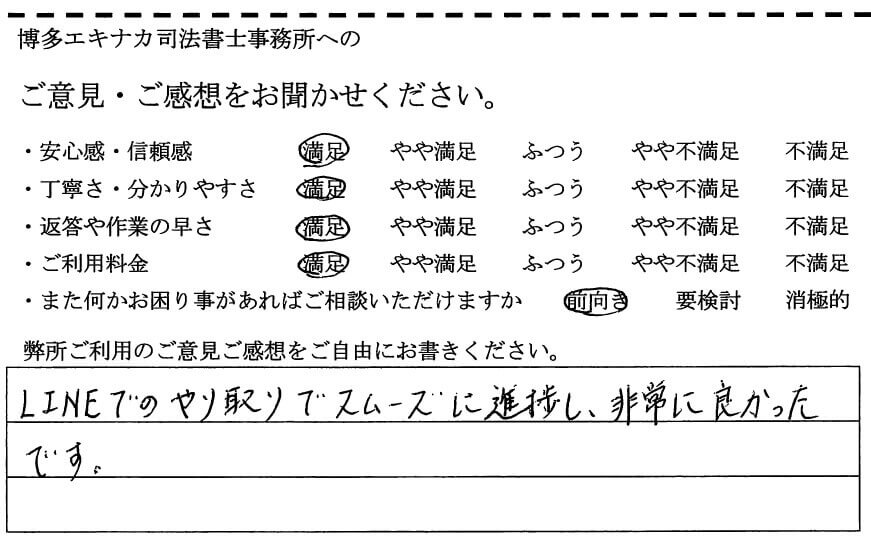 博多エキナカ司法書士事務所への
ご意見・ご感想をお聞かせください。
・安心感・信頼感 満足 やや満足 ふつう やや不満足 不満足
・丁寧さ・分かりやすさ 満足 やや満足 ふつう やや不満足 不満足
・返答や作業の早さ 満足 やや満足 ふつう やや不満足 不満足
・ご利用料金 満足 やや満足 ふつう やや不満足 不満足
・また何かお困り事があればご相談いただけますか 前向き 要検討 消極的
弊所ご利用のご意見ご感想をご自由にお書きください。
LINEでのやり取りでスムーズに進捗し、非常に良かった
です。